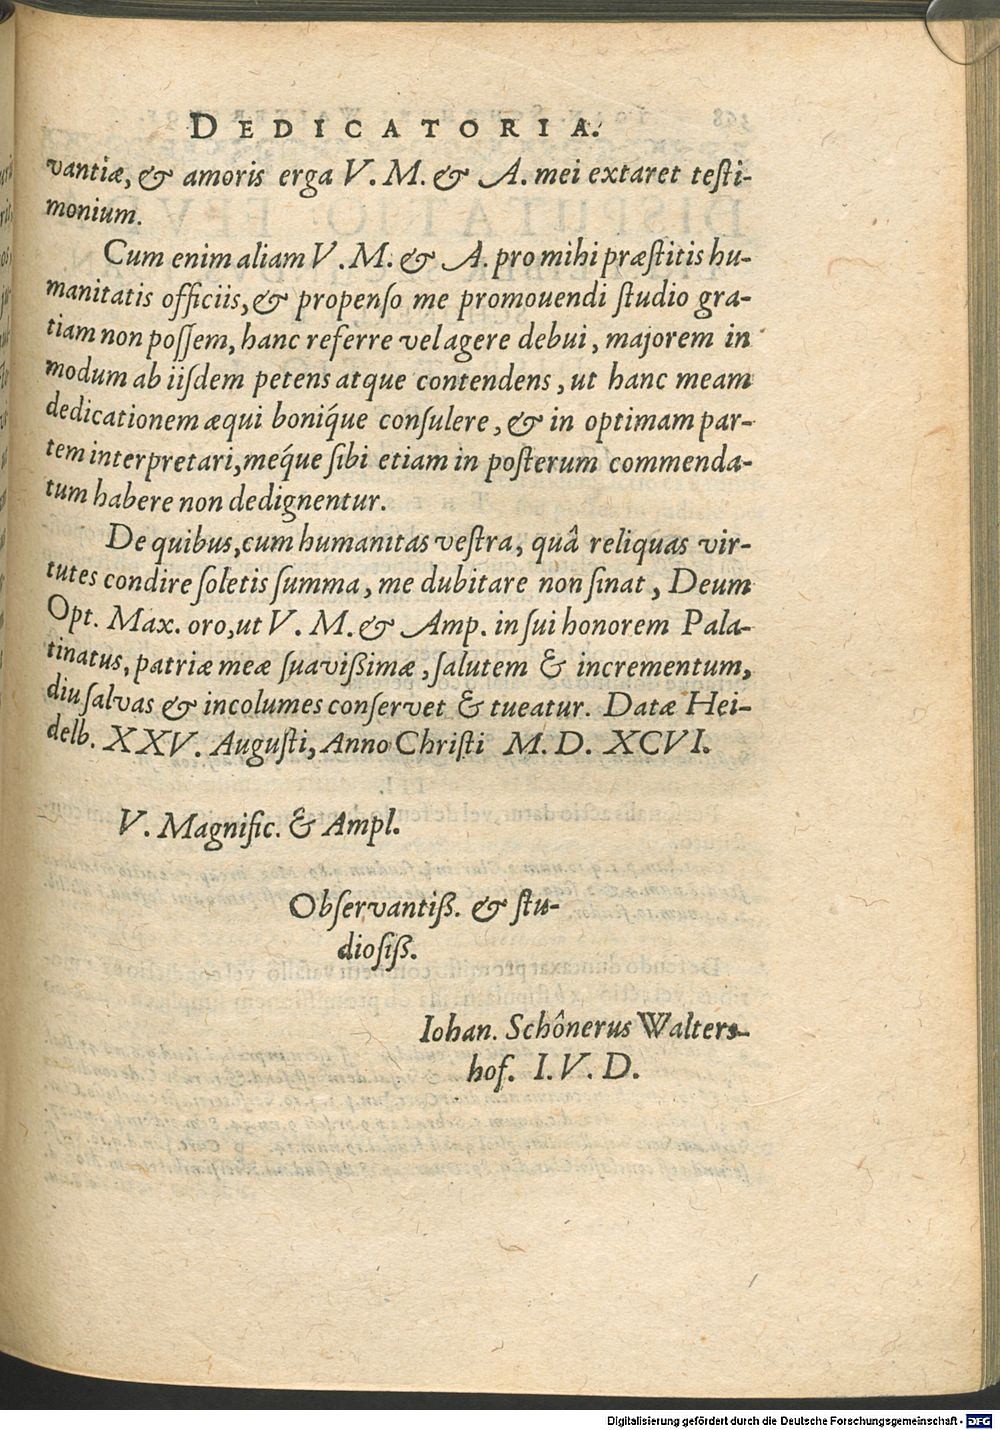 DEDICATORIA.
vantiæ, & amoris erga V. M. & A. mei extaret teſti-
monium.
Cum enim aliam V. M. & A. pro mihi præſtitis hu-
manitatis officiis, & propenſo me promouendi ſtudio gra-
tiam non poſſem, hanc referre vel agere debui, majorem in
modum ab iiſdem petens atque contendens, ut hanc meam
dedicationem æqui boniq́ue conſulere, & in optimam par-
tem interpretari, meq́ue ſibi etiam in poſterum commenda-
tum habere non dedignentur.
De quibus, cum humanitas veſtra, quâ reliquas vir-
tutes condire ſoletis ſumma, me dubitare non ſinat, Deum
Opt. Max. oro, ut V. M. & Amp. in ſui honorem Pala-
tinatus, patriæ meæ ſuavißimæ, ſalutem & incrementum,
diu ſalvas & incolumes conſervet & tueatur. Datæ Hei-
delb. XXV. Auguſti, Anno Chriſti M. D. XCVI.
V. Magnific. & Ampl.
Obſervantiß. & ſtu-
dioſiß.
Iohan. Schônerus Walters-
hof. I. V. D.
Digitalisierung gefördert durch die Deutsche Forschungsgemeinschaft - DFG